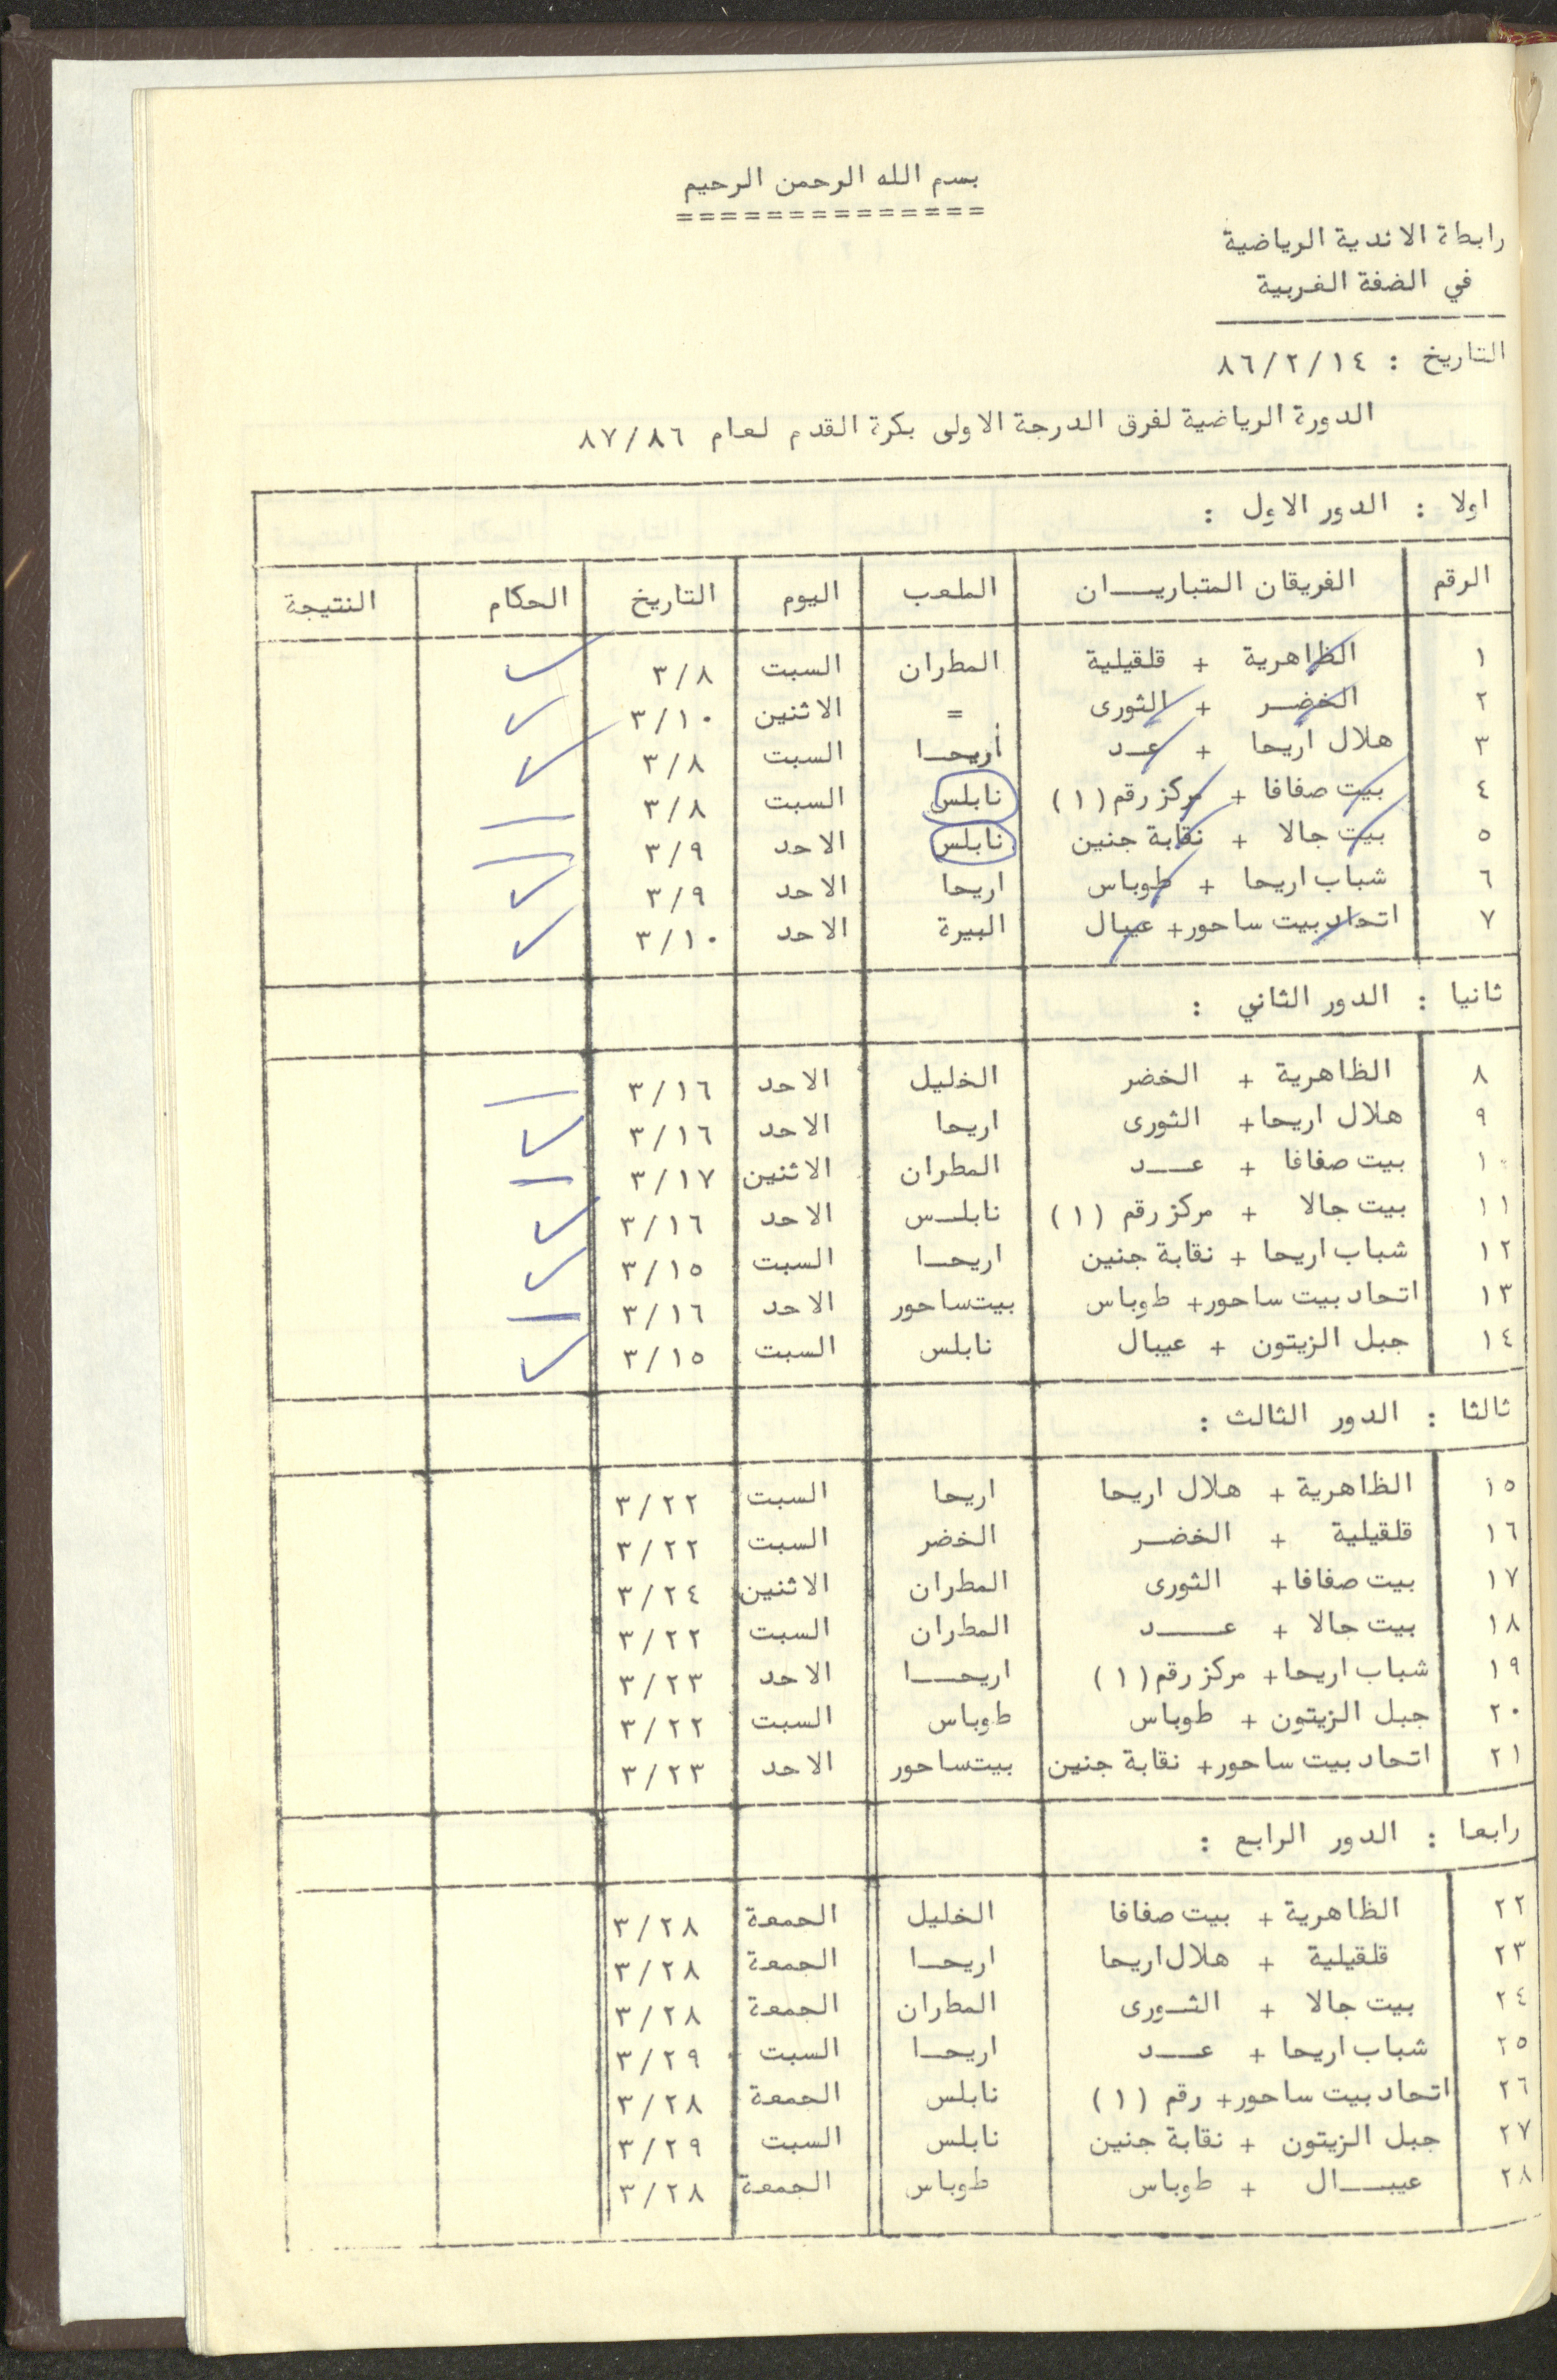 بسم الله الرحمن الرحيم
==============
رابطة الاندية الرياضية
في الضفة الغربية
التاريخ : ٨٦/٢/١٤
الدورة الرياضية لفرق الدرجة الاولى بكرة القدم لعام ٨٧/٨٦
اولا : الدور الاول :
الرقم الفريقان المتباريـــان الملعب اليوم التاريخ الحكام النتيجة
١ الظاهرية + قلقيلية المطران السبت ٣/٨
٢ الخضـر + الثورى = الاثنين ٣/١٠
٣ هلال اريحا + عـد أريحـا السبت ٣/٨
٤ بيت صفافا + مركز رقم (١) نابلس السبت ٣/٨
٥ بيت جالا + نقابة جنين نابلس الاحد ٣/٩
٦ شباب اريحا + طوباس اريحا الاحد ٣/٩
٧ اتحاد بيت ساحور + عيبال البيرة الاحد ٣/١٠
ثانيا : الدور الثاني :
٨ الظاهرية + الخضر الخليل الاحد ٣/١٦
٩ هلال اريحا + الثورى اريحا الاحد ٣/١٦
١٠ بيت صفافا + عــد المطران الاثنين ٣/١٧
١١ بيت جالا + مركز رقم (١) نابلـس الاحد ٣/١٦
١٢ شباب اريحا + نقابة جنين اريحـا السبت ٣/١٥
١٣ اتحاد بيت ساحور + طوباس بيت ساحور الاحد ٣/١٦
١٤ جبل الزيتون + عيبال نابلس السبت ٣/١٥
ثالثا : الدور الثالث :
١٥ الظاهرية + هلال اريحا اريحا السبت ٣/٢٢
١٦ قلقيلية + الخضـر الخضر السبت ٣/٢٢
١٧ بيت صفافا + الثورى المطران الاثنين ٣/٢٤
١٨ بيت جالا + عـــد المطران السبت ٣/٢٢
١٩ شباب اريحا + مركز رقم (١) اريحــا الاحد ٣/٢٣
٢٠ جبل الزيتون + طوباس طوباس السبت ٣/٢٢
٢١ اتحاد بيت ساحور + نقابة جنين بيت ساحور الاحد ٣/٢٣
رابعا : الدور الرابع :
٢٢ الظاهرية + بيت صفافا الخليل الجمعة ٣/٢٨
٢٣ قلقيلية + هلال اريحا اريحـا الجمعة ٣/٢٨
٢٤ بيت جالا + الثـورى المطران الجمعة ٣/٢٨
٢٥ شباب اريحا + عــد اريحـا السبت ٣/٢٩
٢٦ اتحاد بيت ساحور + رقم (١) نابلس الجمعة ٣/٢٨
٢٧ جبل الزيتون + نقابة جنين نابلس السبت ٣/٢٩
٢٨ عيبــال + طوباس طوباس الجمعة ٣/٢٨